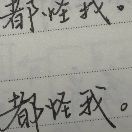 都怪我。
都怪我。